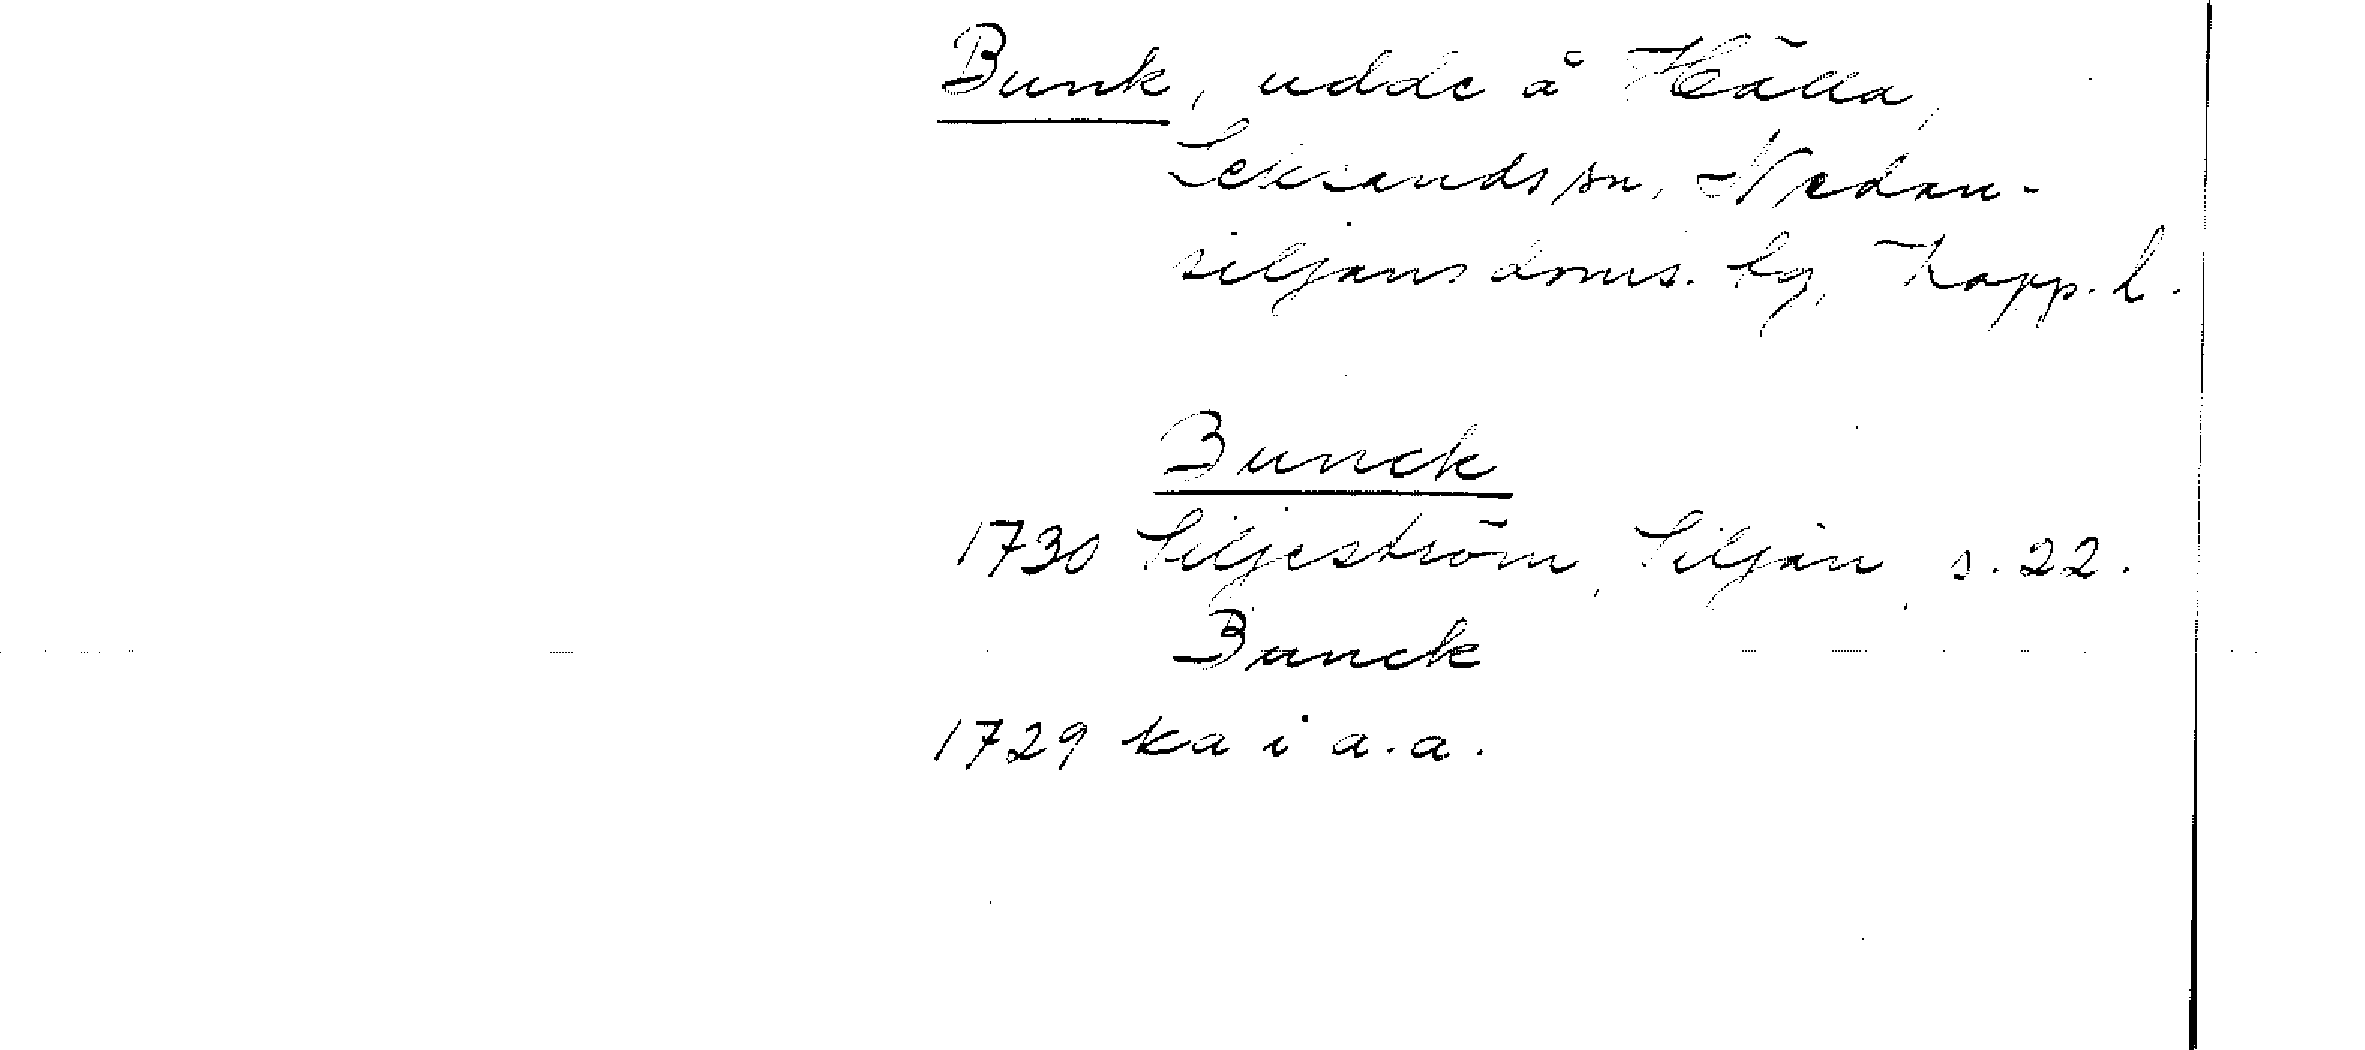 Bunk, udde å Hälla,
Leksands sn, Nedan-
siljans doms. tg, Kopp. l.
Bunck
1730 Siljeström, Siljan, s. 22.
Bunck
1729 ka i a.a.